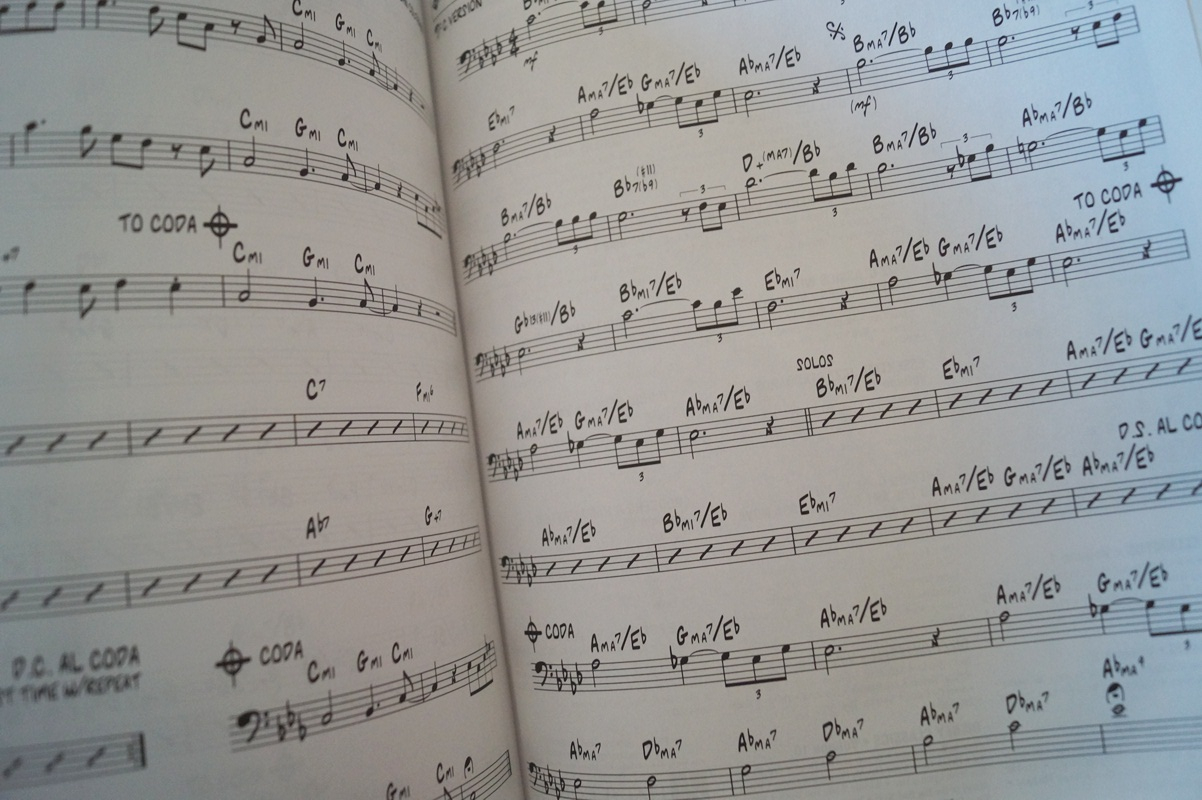 Cmi Gmi Cmi
Cmi Gmi Cmi
TO CODA
Cmi Gmi Cmi
C7 Fmi6
Ab7 G+7
D.C. AL CODA
TIME W/REPEAT
CODA
Cmi Gmi Cmi
Gmi Cmi
VERSION
mf 3
Ebmi7 Ama7/Eb Gma7/Eb Abma7/Eb Bma7/Bb Bb7(b9)
3 (mf) 3 3
Bma7/Bb Bb7(b9)(#11) D+(MA7)/Bb Bma7/Bb Abma7/Bb
3 3 3 3 3
TO CODA
Gb13(#11)/Bb Bbmi7/Eb Ebmi7 Ama7/Eb Gma7/Eb Abma7/Eb
3 3
SOLOS
Ama7/Eb Gma7/Eb Abma7/Eb Bbmi7/Eb Ebmi7 Ama7/Eb Gma7/E
3
D.S. AL CO
Abma7/Eb Bbmi7/Eb Ebmi7 Ama7/Eb Gma7/Eb Abma7/Eb
CODA
Ama7/Eb Gma7/Eb Abma7/Eb Ama7/Eb Gma7/Eb
3 3
Abma7 Dbma7 Abma7 Dbma7 Abma7 Dbma7 Abma9